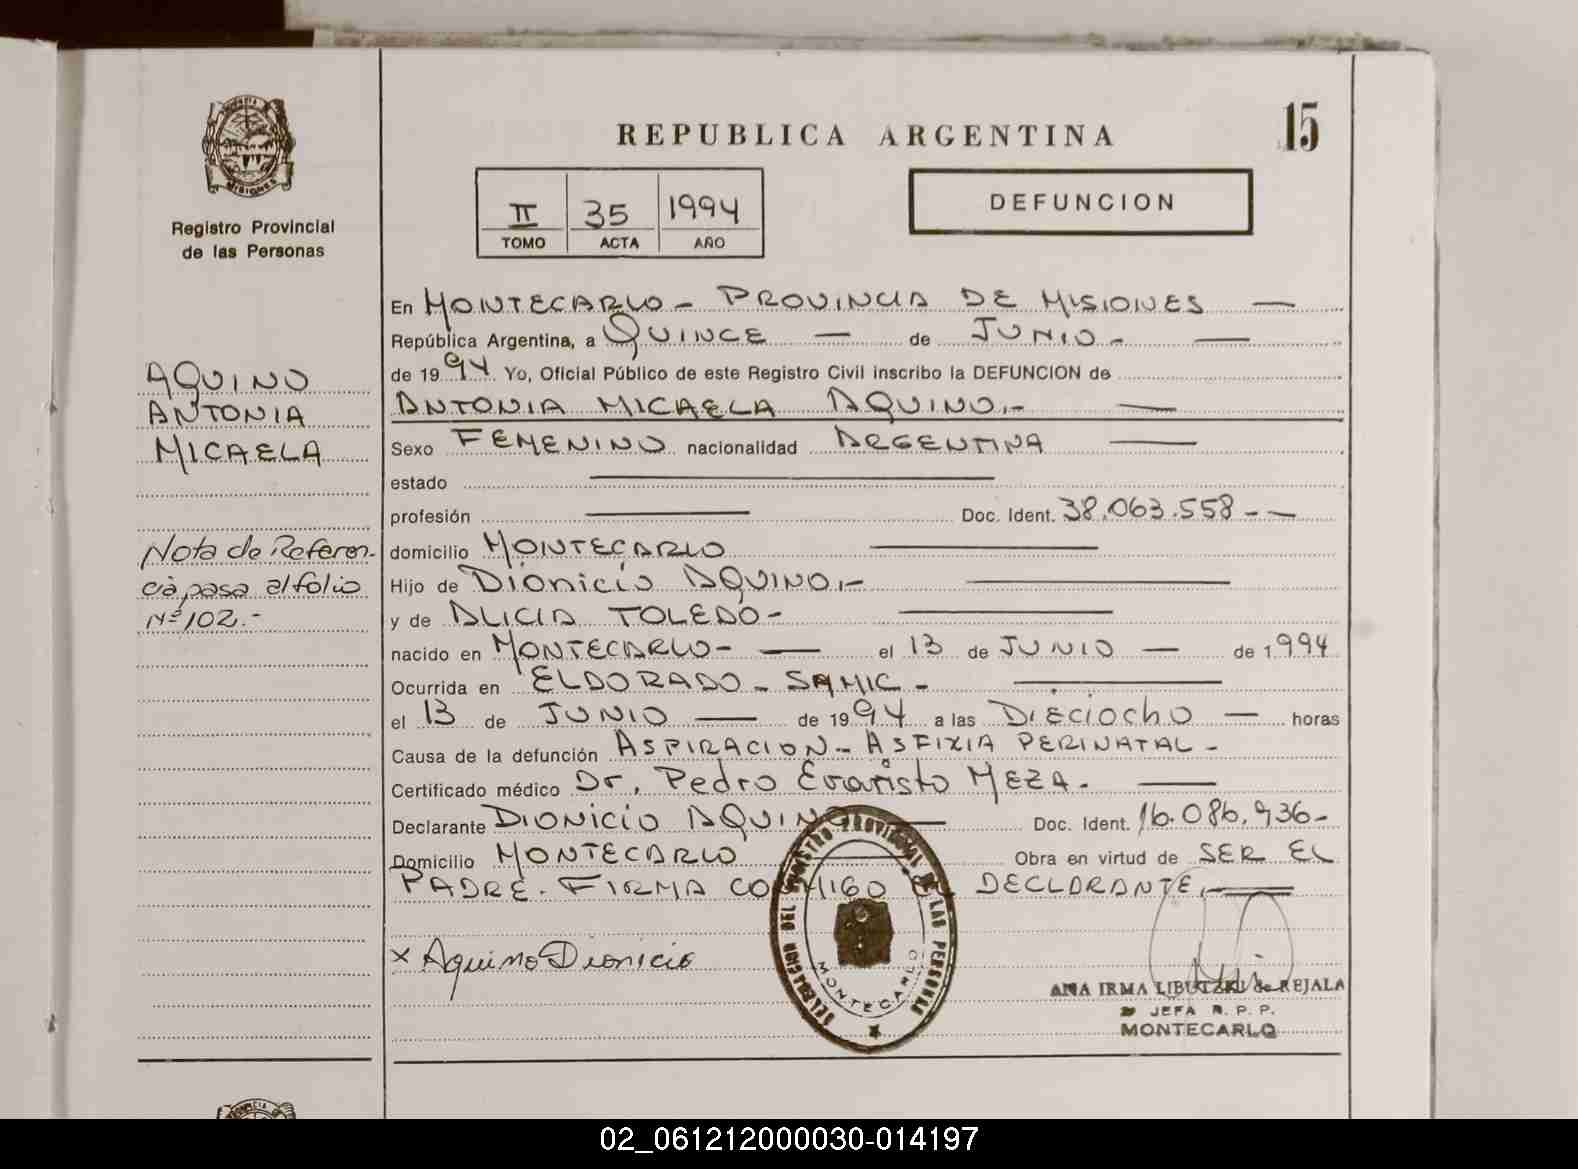 PROVINCIA DE
MISIONES
Registro Provincial
de las Personas
AQUINO
ANTONIA
MICAELA
Nota de Referen-
cia pasa al folio
Nº 102.-
15
REPUBLICA ARGENTINA
II 35 1994
TOMO ACTA AÑO
DEFUNCION
En MONTECARLO - PROVINCIA DE MISIONES —
República Argentina, a QUINCE — de JUNIO.- —
de 1994 Yo, Oficial Público de este Registro Civil inscribo la DEFUNCION de
ANTONIA MICAELA AQUINO.- —
Sexo FEMENINO nacionalidad ARGENTINA —
estado —
profesión — Doc. Ident. 38.063.558 - —
domicilio MONTECARLO —
Hijo de Dionicio AQUINO.- —
y de ALICIA TOLEDO- —
nacido en MONTECARLO- — el 13 de JUNIO — de 1994
Ocurrida en ELDORADO - SAMIC - —
el 13 de JUNIO — de 1994 a las Dieciocho — horas
Causa de la defunción ASPIRACION - ASFIXIA PERINATAL -
Certificado médico Dr. Pedro Evaristo MEZA. —
Declarante DIONICIO AQUINO — Doc. Ident. 16.086.936-
Domicilio MONTECARLO — Obra en virtud de SER EL
PADRE. FIRMA CONMIGO EL DECLARANTE.- —
x Aquino Dionicio
DELEGACION DEL REGISTRO PROVINCIAL DE LAS PERSONAS
MONTECARLO
ANA IRMA LIBUTZKI de REJALA
JEFA R. P. P.
MONTECARLO
02_061212000030-014197